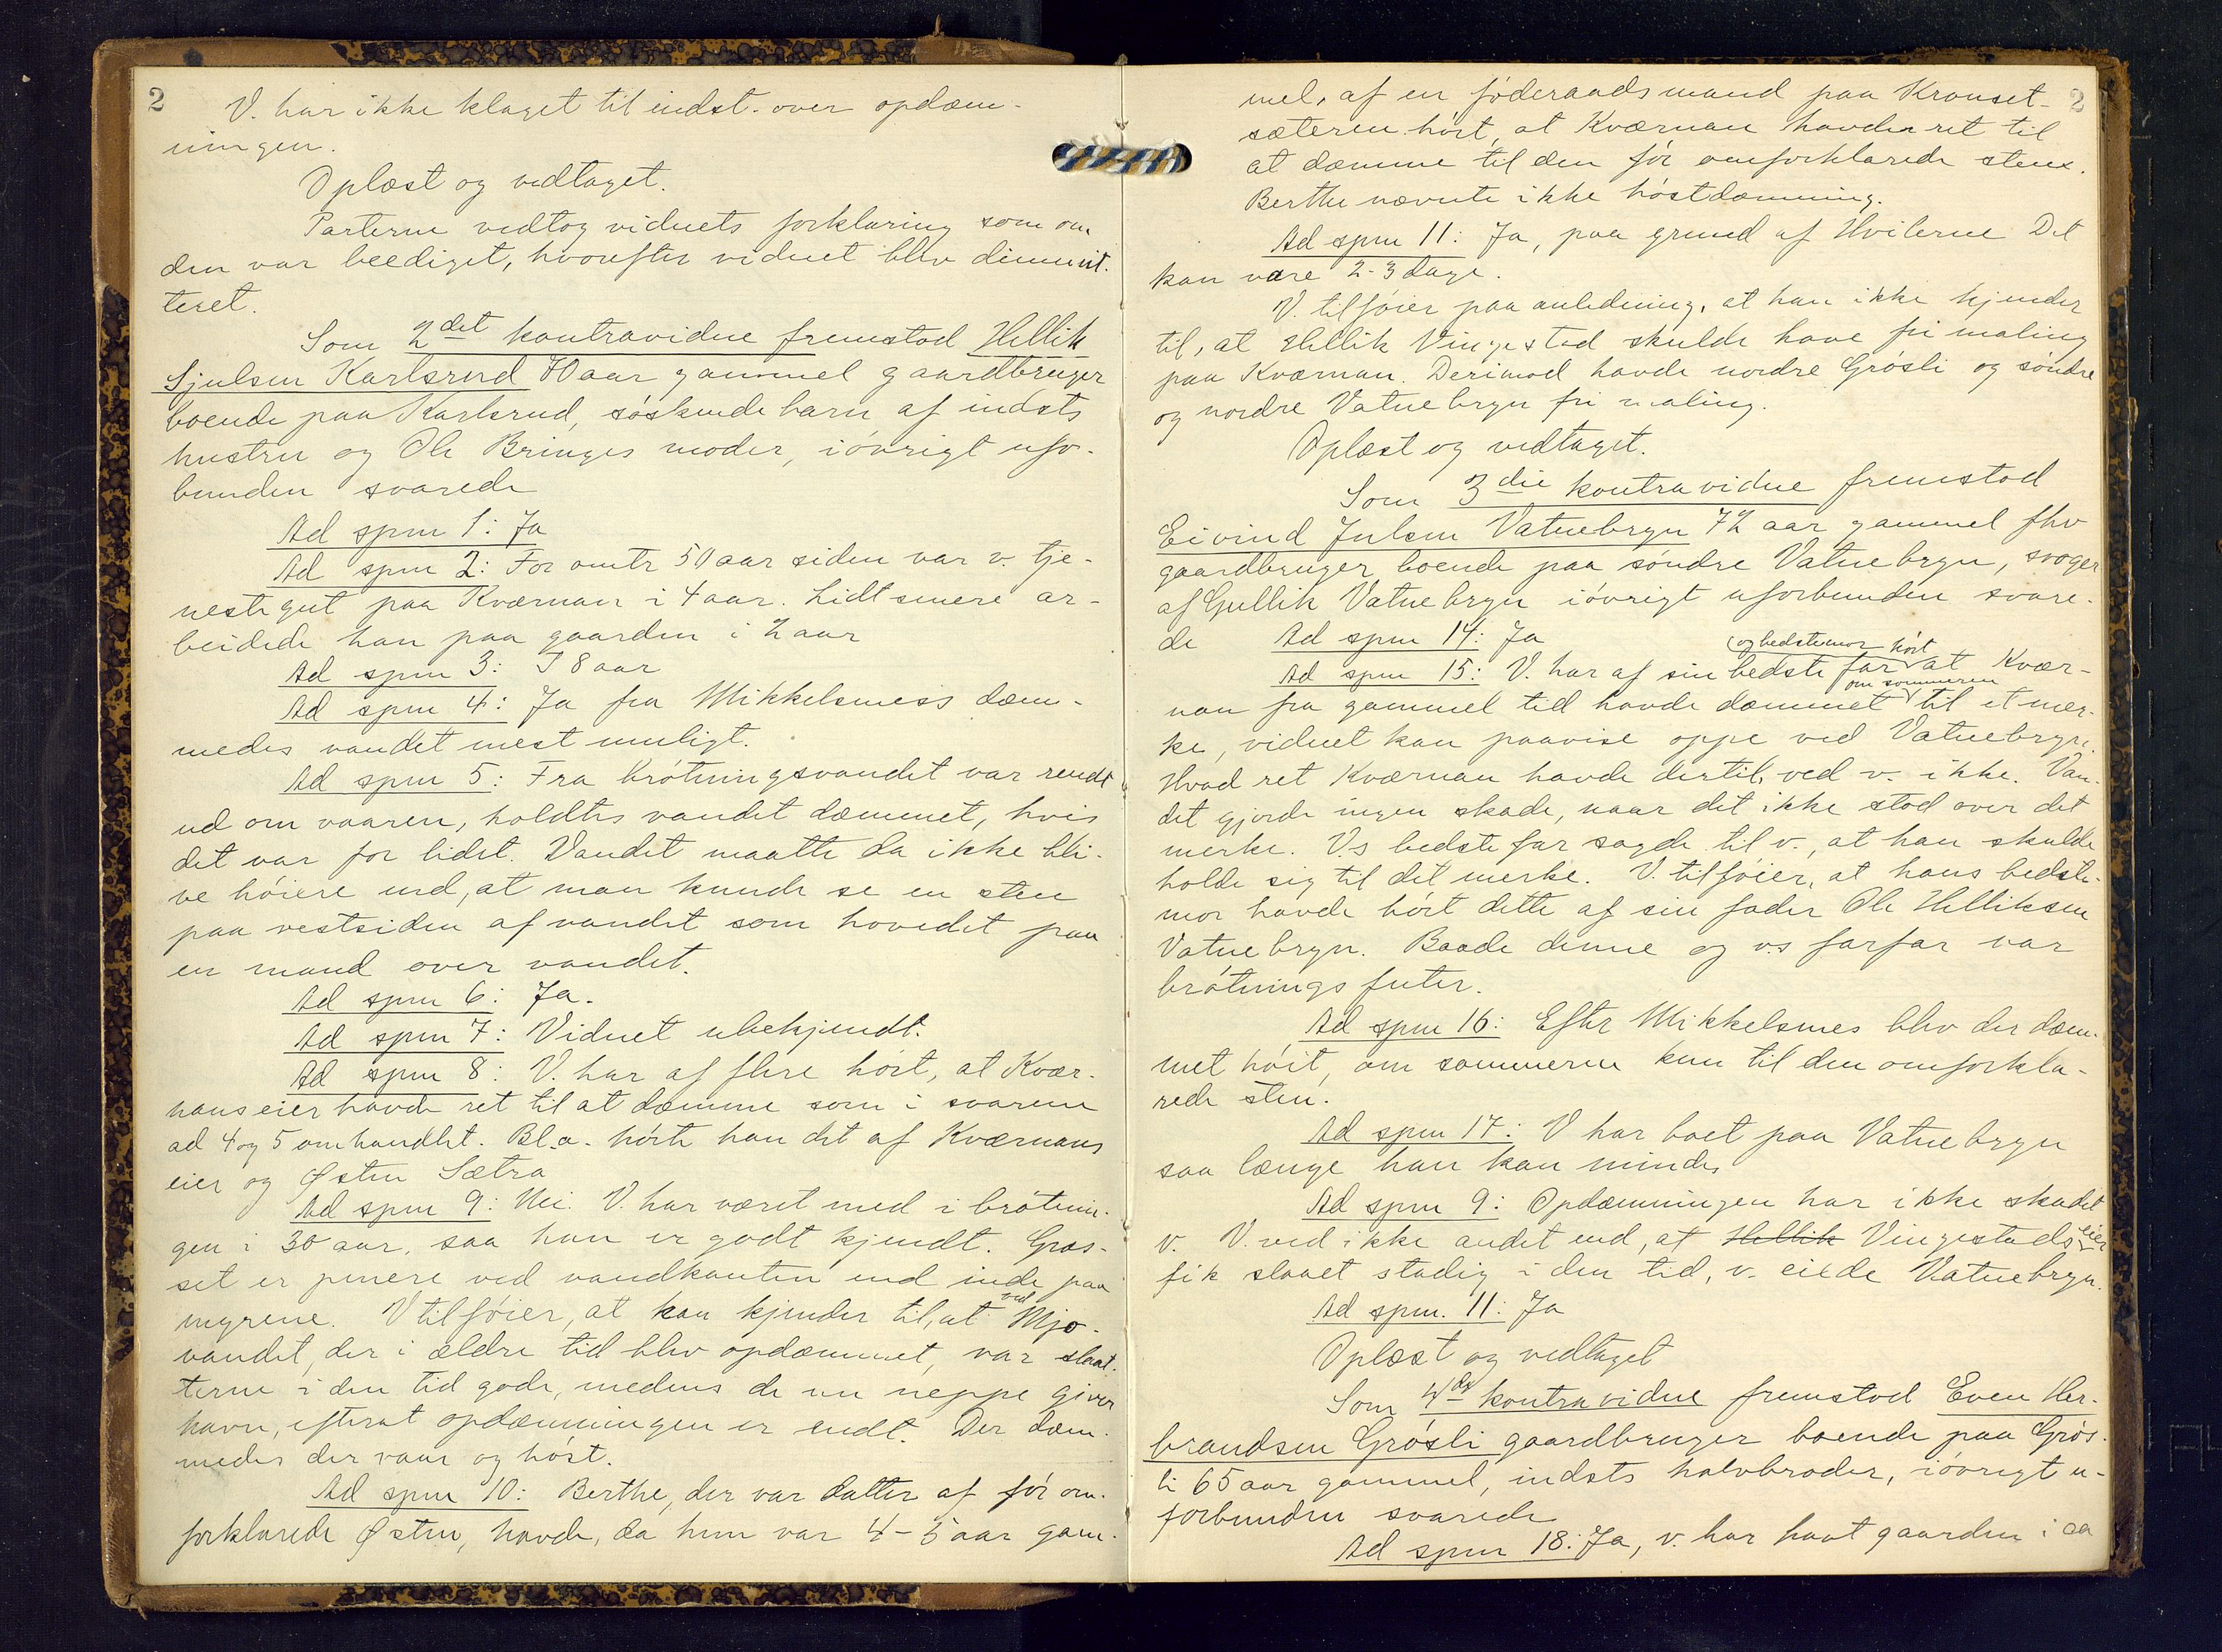 2
V. har ikke klaget til indst. over opdæm-
ningen.
Oplæst og vedtaget.
Parterne vedtog vidnets forklaring som om
den var beediget, hvorefter vidnet blev dimmit-
teret.
Som 2det kontravidne fremstod Hellik
Sjulsen Karlsrud 70 aar gammel gaardbruger
boende paa Karlsrud, søskendebarn af indsts
hustru og Ole Bringes moder, iøvrigt ufor-
bunden svarede
Ad spm 1: Ja
Ad spm 2: For omtr 50 aar siden var v. tje-
nestegut paa Kværnan i 4 aar. Lidt senere ar-
beidede han paa gaarden i 2 aar
Ad spm 3: I 8 aar
Ad spm 4: Ja fra Mikkelsmess dæm-
medes vandet mest muligt.
Ad spm 5: Fra brøtningsvandet var rendt
ud om vaaren, holdtes vandet dæmmet, hvis
det var for lidet. Vandet maatte da ikke bli-
ve høiere end, at man kunde se en sten
paa vestsiden af vandet som hovedet paa
en mand over vandet.
Ad spm 6: Ja.
Ad spm 7: Vidnet ubekjendt.
Ad spm 8: V. har af flere hørt, at Kvær-
nans eier havde ret til at dæmme som i svarene
ad 4 og 5 omhandlet. Bl.a. hørte han det af Kværnans
eier og Østen Sætra
Ad spm 9: Nei. V. har været med i brøtnin-
gen i 30 aar, saa han er godt kjendt. Græs-
set er penere ved vandkanten end inde paa
myrene. V tilføier, at han kjender til, at ved Mjo-
vandet, der i ældre tid blev opdæmmet, var slaat-
terne i den tid gode, medens de nu neppe giver
havn, efterat opdæmningen er endt. Der dæm-
medes der vaar og høst.
Ad spm 10: Berthe, der var datter af før om-
forklarede Østen, havde, da hun var 4-5 aar gam-
2
mel, af en føderaadsmand paa Kravset-
sæteren hørt, at Kværnan havde ret til
at dæmme til den før omforklarede sten.
Berthe nævnte ikke høstdæmning.
Ad spm 11: Ja, paa grund af Hvilerne Det
kan være 2-3 dage.
V. tilføier paa anledning, at han ikke kjender
til, at Hellik Vingestad skulde have fri maling
paa Kværnan. Derimod havde nordre Grøsli og søndre
og nordre Vatnebryn fri maling.
Oplæst og vedtaget.
Som 3die kontravidne fremstod
Eivind Julsen Vatnebryn 72 aar gammel fhv
gaardbruger boende paa søndre Vatnebryn, svoger
af Gullik Vatnebryn iøvrigt uforbunden svare-
de Ad spm 14: Ja
Ad spm 15: V. har af sin bedstefar og bedstemor hørt at Kvær-
nan fra gammel tid havde dæmmet om sommeren til et mer-
ke, vidnet kan paavise oppe ved Vatnebryn.
Hvad ret Kværnan havde dertil, ved v. ikke. Van-
det gjorde ingen skade, naar det ikke stod over det
merke. V.s bedstefar sagde til v., at han skulde
holde sig til det merke. V. tilføier, at hans bedste-
mor havde hørt dette af sin fader Ole Helliksen
Vatnebryn. Baade denne og v.s farfar var
brøtningsfuter.
Ad spm 16: Efter Mikkelsmes blev der dæm-
met høit, om sommeren kun til den omforkla-
rede sten.
Ad spm 17: V har boet paa Vatnebryn
saa længe han kan mindes
Ad spm 9: Opdæmningen har ikke skadet
v. V. ved ikke andet end, at Hellik Vingestads eier
fik slaaet stadig i den tid, v. eiede Vatnebryn.
Ad spm. 11: Ja
Oplæst og vedtaget
Som 4de kontravidne fremstod Even Her-
brandsen Grøsli gaardbruger boende paa Grøs-
li 65 aar gammel, indsts halvbroder, iøvrigt u-
forbunden svarede
Ad spm 18: Ja, v. har havt gaarden i ca